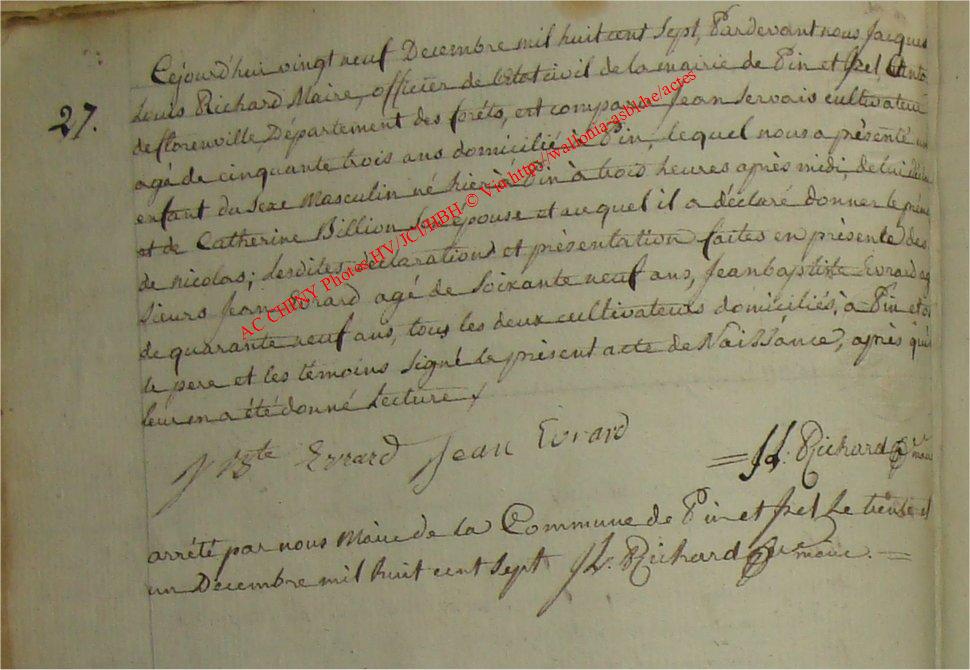 27.
Cejourd'hui vingt neuf Decembre mil huit cent sept, Pardevant nous Jacques
Louis Richard Maire, officier de l'état civil de la mairie de Pin et Izel, Canto
de florenville, Département des forêts, est comparu Jean Servais cultivateur
agé de cinquante trois ans domicilié à Pin, lequel nous a présenté un
enfant du Sexe Masculin né hier à Pin à trois heures après midi, de lui
et de Catherine Billion Son épouse et auquel il a déclaré donner le prénom
de nicolas; lesdites déclaration et présentation faites en présence des
Sieurs Jean Evrard agé de Soixante neuf ans, Jean baptiste Evrard ag
de quarante neuf ans, tous les deux cultivateurs domiciliés à Pin et
le pere et les témoins Signé le présent acte de Naissance, après qu'il
leur en a été donné Lecture
J Bte Evrard Jean Evrard
JL. Richard maire
arrêté par nous Maire de la Commune de Pin et Izel le trente et
un Decembre mil huit cent Sept JL. Richard maire
AC CHINY Photos HV/JCl/HBH-© Via http://wallonia-asbl.be/actes